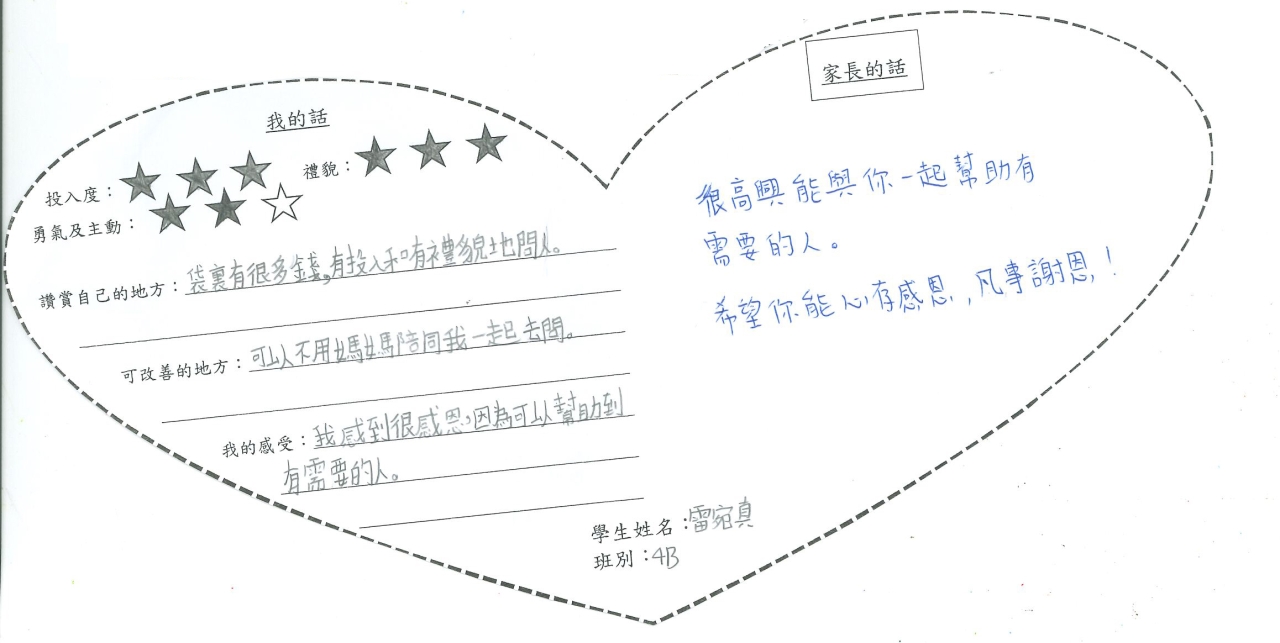 我的話
投入度：★ ★ ★ 禮貌：★ ★ ★
勇氣及主動：★ ★ ☆
讚賞自己的地方：袋裏有很多錢,有投入和有禮貌地問人。
可改善的地方：可以不用媽媽陪同我一起去問。
我的感受：我感到很感恩,因為可以幫助到
有需要的人。
學生姓名：雷宛真
班別：4B
家長的話
很高興能與你一起幫助有
需要的人。
希望你能心存感恩,凡事謝恩!